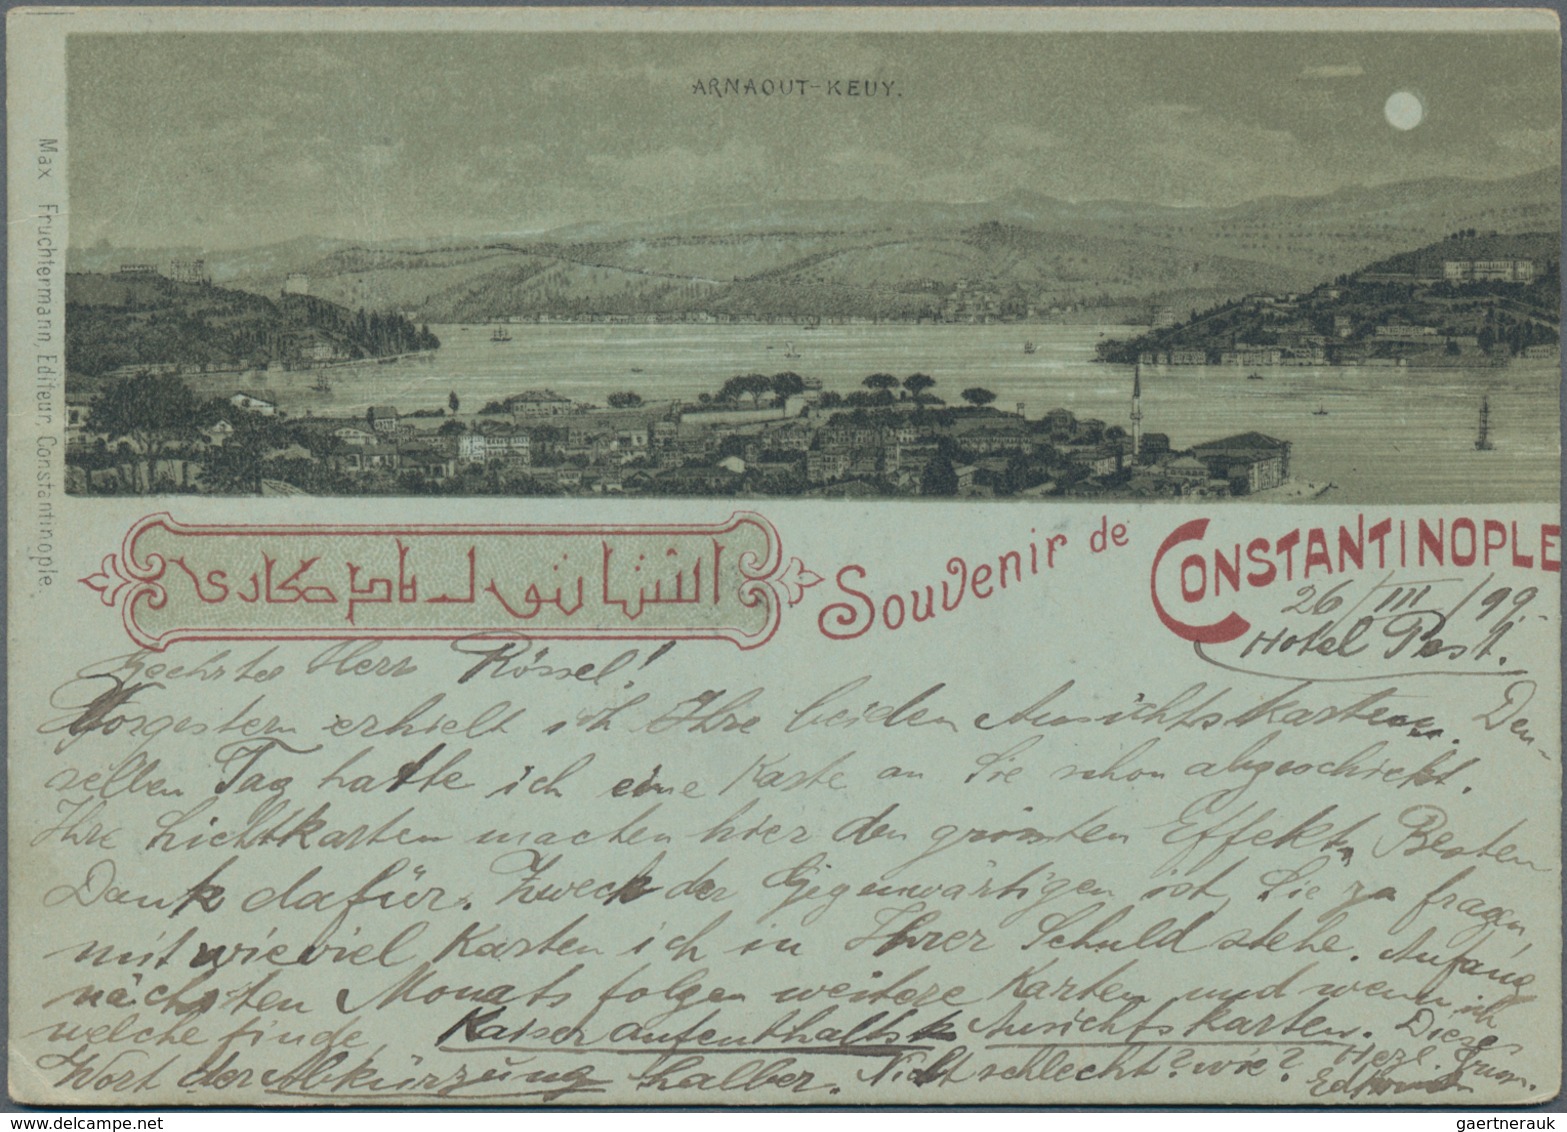 ARNAOUT-KEUY.
Max Fruchtermann, Editeur, Constantinople.
Souvenir de CONSTANTINOPLE
26/III/99.
Hotel Pest.
Geehrter Herr Rössel!
Vorgestern erhielt ich Ihre beiden Ansichtskarten. Den-
selben Tag hatte ich eine Karte an Sie schon abgeschickt.
Ihre Lichtkarten machen hier den grössten Effekt. Besten
Dank dafür. Zweck der Gegenwärtigen ist, Sie zu fragen,
mit wieviel Karten ich in Ihrer Schuld stehe. Anfang
nächsten Monats folgen weitere Karten und wenn ich
welche finde, Kaiseraufenthalts Ansichtskarten. Diese
Wort der Abkürzung halber. Nicht schlecht? wie? Herzl.
delcampe.net
gaertnerauk